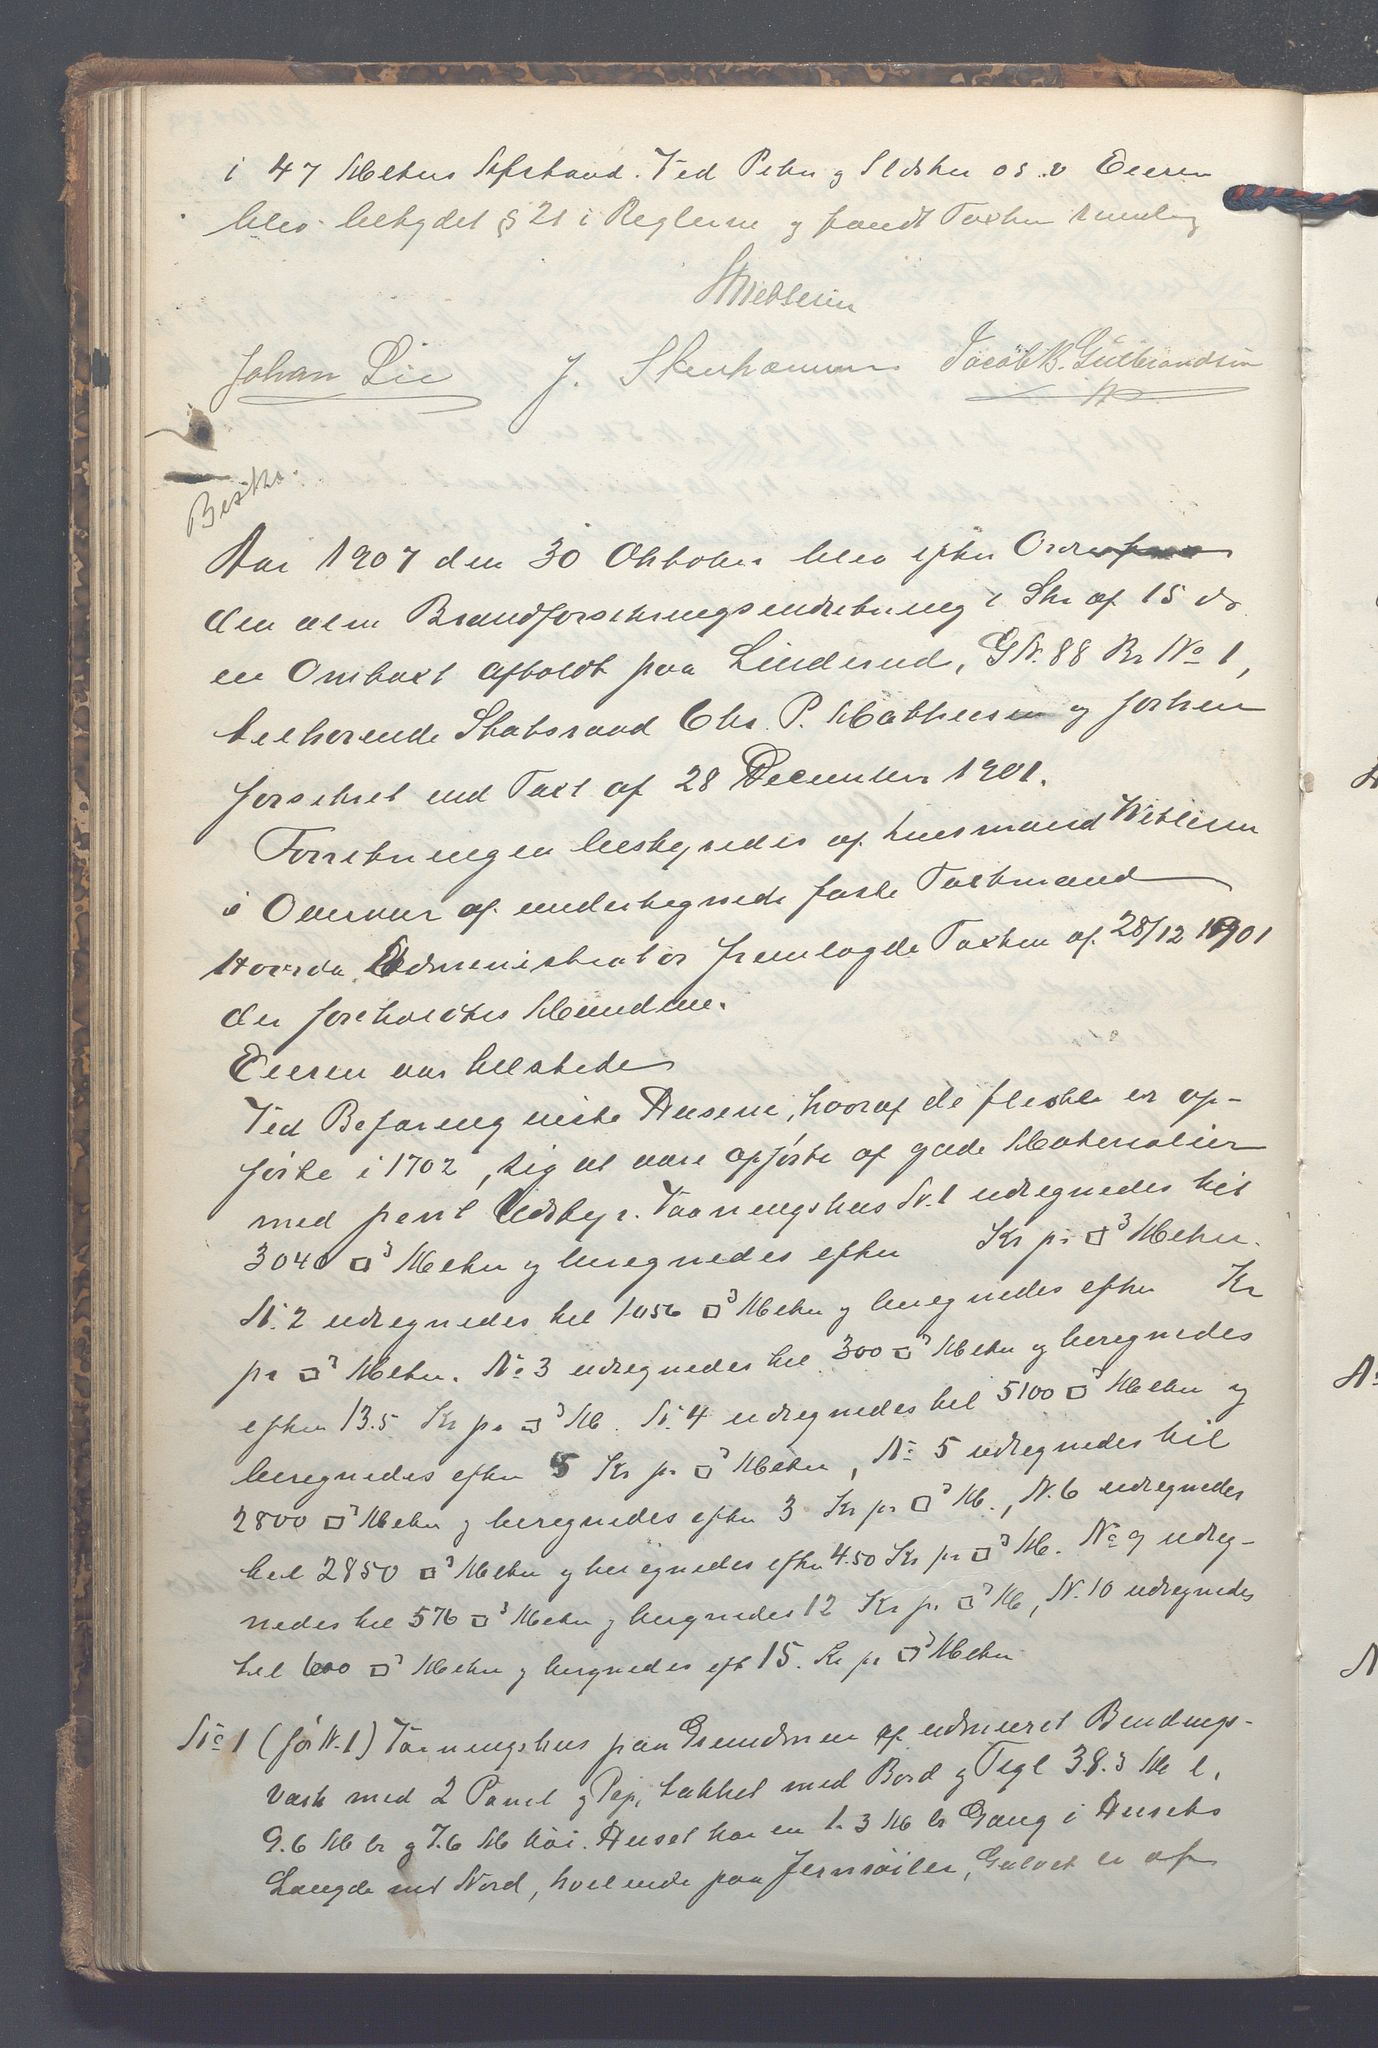 i 47 Meters Afstand. Ved Peter og Ildsteder o s. v Eieren
blev betydet § 21 i Reglerne og fandt Taxten rimelig
Johan Lie J. Stenhammer Jacob K. Gulbrandsen
Beskr.
Aar 1907 den 30 Oktober blev efter Ordre fra
den alm Brandforsikringsindretning i Skr af 15 ds
en Omtaxt afholdt paa Linderud, GN. 88 Br No 1,
tilhørende Statsraad Chr. P. Mathiesen og forhen
forsikret ved Taxt af 28 December 1901.
Forretningen bestyredes af Lensmand
i Overvær af undertegnede faste Taxtmænd
Hvorda Administrator fremlagde Taxten af 28/12 1901
der foreholdtes Mændene.
Eieren var tilstede
Ved Befaring viste Husene, hvoraf de fleste er op-
førte i 1702, sig at være opførte af gode Materialier
med pent Udstyr. Vaaningshus N. 1 udregnedes til
3040 □³ Meter og beregnedes efter Kr pr □³ Meter.
N. 2 udregnedes til 1056 □³ Meter og beregnedes efter Kr
pr □³ Meter. No 3 udregnedes til 300 □³ Meter og beregnedes
efter 13.5 Kr pr □³ M. N. 4 udregnedes til 5100 □³ Meter og
beregnedes efter 5 Kr pr □³ Meter, No 5 udregnedes til
2800 □³ Meter og beregnedes efter 3 Kr pr □³ M., N. 6 udregnedes
til 2850 □³ Meter og beregnedes efter 4.50 Kr pr □³ M. No 9 udreg-
nedes til 576 □³ Meter og beregnedes 12 Kr pr □³ M, N. 10 udregnedes
til 600 □³ Meter og beregnedes eft 15. Kr pr □³ Meter
No 1 (før N. 1) Vaaningshus paa Grundmur af udmuret Bindings-
værk med 2 Panel og Pap, tækket med Bord og Tegl 38.3 M l.
9.6 M br og 7.6 M høi. Huset har en 1.3 M br Gang i Husets
Længde mod Nord, hvilende paa Jernsøiler, Gulvet er af